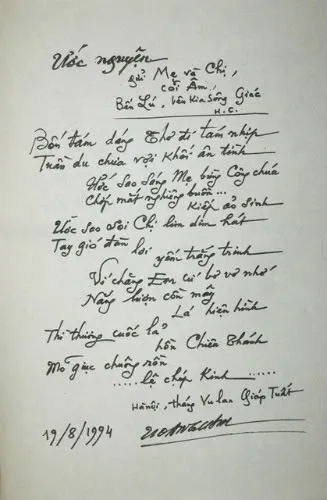 Ước nguyện
gửi Mẹ và Chị,
cõi Âm,
Bến Lú, bên Kia Sông Giác
H.C.
Bốn tám dáng Thơ đi tám nhịp
Tuần du chưa vợi Khối ân tình
Ước Sao Sáng Mẹ bừng Công chúa
Chớp mắt nghiêng buồn...
Kiếp ảo sinh
Ước sao Soi Chị lim dim hát
Tay gió đàn lơi
yến trắng trinh
Ví chăng Em cứ bơ vơ nhớ
Nắng lượn cồn mây
Lá hiện hình
Thi thương cuốc lả
hồn Chiên Thánh
Mõ giục chuông rên
..... lệ chép Kinh .....
Hà nội, tháng Vu lan Giáp Tuất
19/8/1994